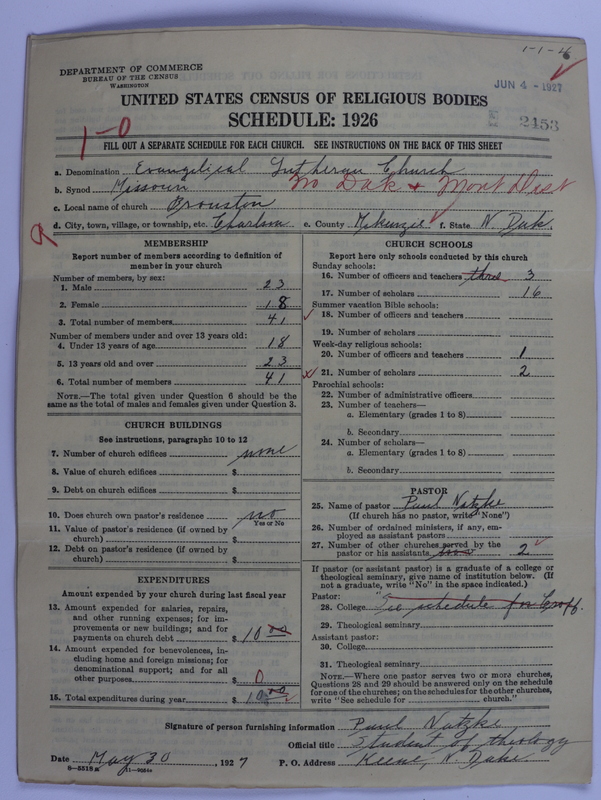 1-1-46
DEPARTMENT OF COMMERCE
BUREAU OF THE CENSUS
WASHINGTON
JUN 4 - 1927
UNITED STATES CENSUS OF RELIGIOUS BODIES
2153
SCHEDULE: 1926
1-0
FILL OUT A SEPARATE SCHEDULE FOR EACH CHURCH. SEE INSTRUCTIONS ON THE BACK OF THIS SHEET
a. Denomination Evangelical Lutheran Church
b. Synod Missouri No Dak & Mont Dist
c. Local name of church Brouston
d. City, town, village, or township, etc. Charlson e. County McKenzie f. State N. Dak.
MEMBERSHIP
Report number of members according to definition of
member in your church
Number of members, by sex:
1. Male 23
2. Female 18
3. Total number of members 41
Number of members under and over 13 years old:
4. Under 13 years of age 18
5. 13 years old and over 23
6. Total number of members 41
NOTE.—The total given under Question 6 should be the
same as the total of males and females given under Question 3.
CHURCH BUILDINGS
See instructions, paragraphs 10 to 12
7. Number of church edifices none
8. Value of church edifices $
9. Debt on church edifices $
10. Does church own pastor's residence no
Yes or No
11. Value of pastor's residence (if owned by
church) $
12. Debt on pastor's residence (if owned by
church) $
EXPENDITURES
Amount expended by your church during last fiscal year
13. Amount expended for salaries, repairs,
and other running expenses; for im-
provements or new buildings; and for
payments on church debt $ 10 00
14. Amount expended for benevolences, in-
cluding home and foreign missions; for
denominational support; and for all
other purposes $ 0
15. Total expenditures during year $ 10 00
CHURCH SCHOOLS
Report here only schools conducted by this church
Sunday schools:
16. Number of officers and teachers three 3
17. Number of scholars 16
Summer vacation Bible schools:
18. Number of officers and teachers
19. Number of scholars
Week-day religious schools:
20. Number of officers and teachers 1
21. Number of scholars 2
Parochial schools:
22. Number of administrative officers
23. Number of teachers—
a. Elementary (grades 1 to 8)
b. Secondary
24. Number of scholars—
a. Elementary (grades 1 to 8)
b. Secondary
PASTOR
25. Name of pastor Paul Natzke
(If church has no pastor, write "None")
26. Number of ordained ministers, if any, em-
ployed as assistant pastors
27. Number of other churches served by the
pastor or his assistants two 2
If pastor (or assistant pastor) is a graduate of a college or
theological seminary, give name of institution below. (If
not a graduate, write "No" in the space indicated.)
Pastor:
28. College "See schedule for Croff.
29. Theological seminary
Assistant pastor:
30. College
31. Theological seminary
NOTE.—Where one pastor serves two or more churches,
Questions 28 and 29 should be answered only on the schedule
for one of the churches; on the schedules for the other churches,
write "See schedule for church."
Signature of person furnishing information Paul Natzke
Official title Student of theology
Date May 30, 1927 P. O. Address Keene, N. Dak.
8-5518a